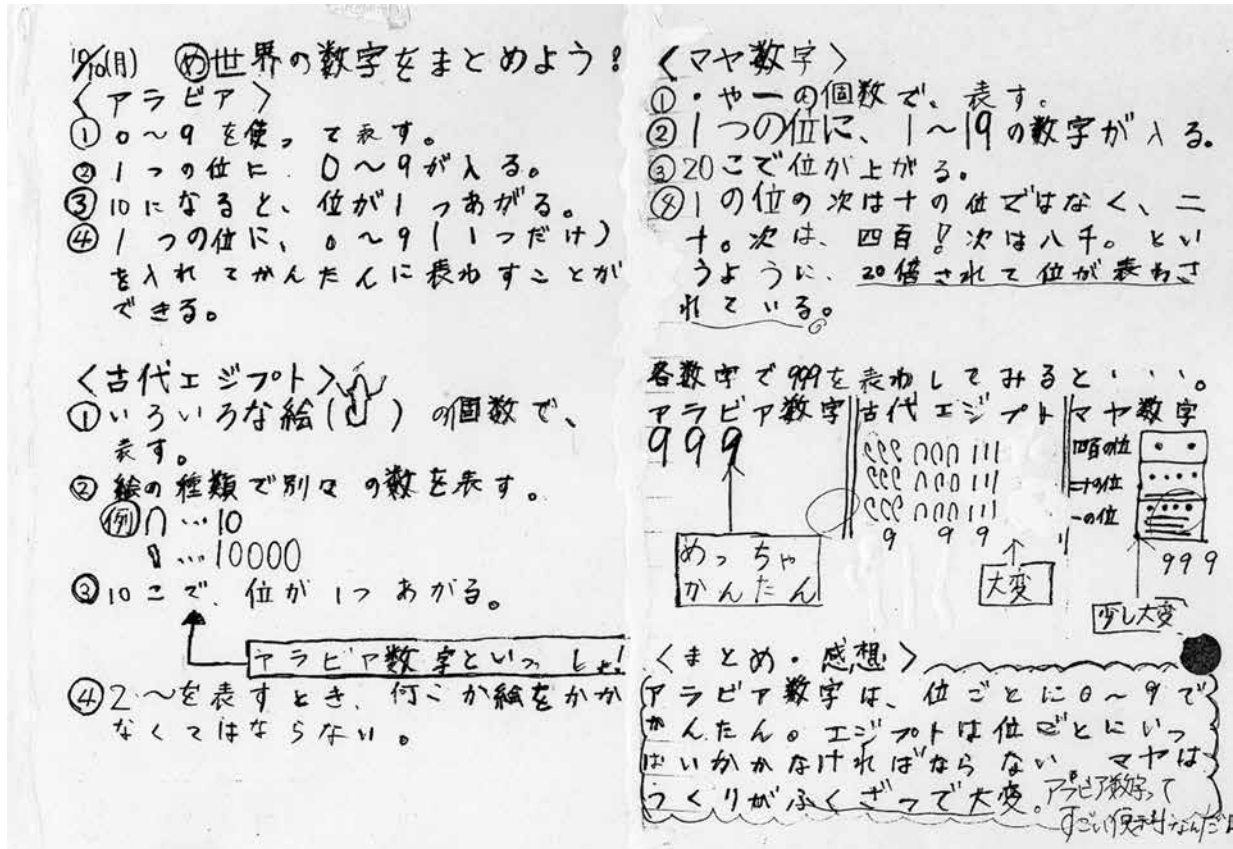 10/10(月) め世界の数字をまとめよう!
〈アラビア〉
①0〜9を使って表す。
②1つの位に、0〜9が入る。
③10になると、位が1つあがる。
④1つの位に、0〜9(1つだけ)
を入れてかんたんに表わすことが
できる。
〈古代エジプト〉
①いろいろな絵( )の個数で、
表す。
②絵の種類で別々の数を表す。
例∩…10
…10000
③10こで、位が1つあがる。
アラビア数字といっしょ!
④2〜を表すとき、何こか絵をかか
なくてはならない。
〈マヤ数字〉
①・や一の個数で、表す。
②1つの位に、1〜19の数字が入る。
③20こで位が上がる。
④1の位の次は十の位ではなく、二
十。次は、四百!次は八千。とい
うように、20倍されて位が表わさ
れている。
各数字で999を表わしてみると・・・。
アラビア数字 古代エジプト マヤ数字
999
めっちゃ
かんたん
999 ∩∩∩ 111
999 ∩∩∩ 111
999 ∩∩∩ 111
9 9 9
大変
四百の位
二十の位
一の位
999
少し大変
〈まとめ・感想〉
アラビア数字は、位ごとに0〜9で
かんたん。エジプトは位ごとにいっ
ぱいかかなければならない。マヤは
つくりがふくざつで大変。アラビア数字って
すごい便利なんだ